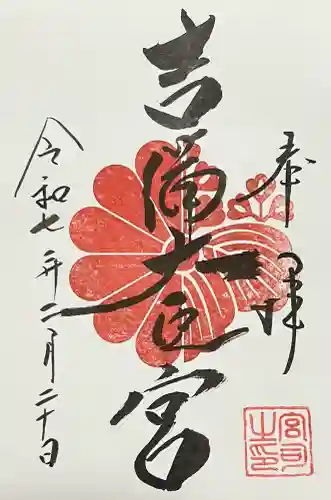 奉拝
吉備大臣宮
令和七年二月二十日
宮司之印